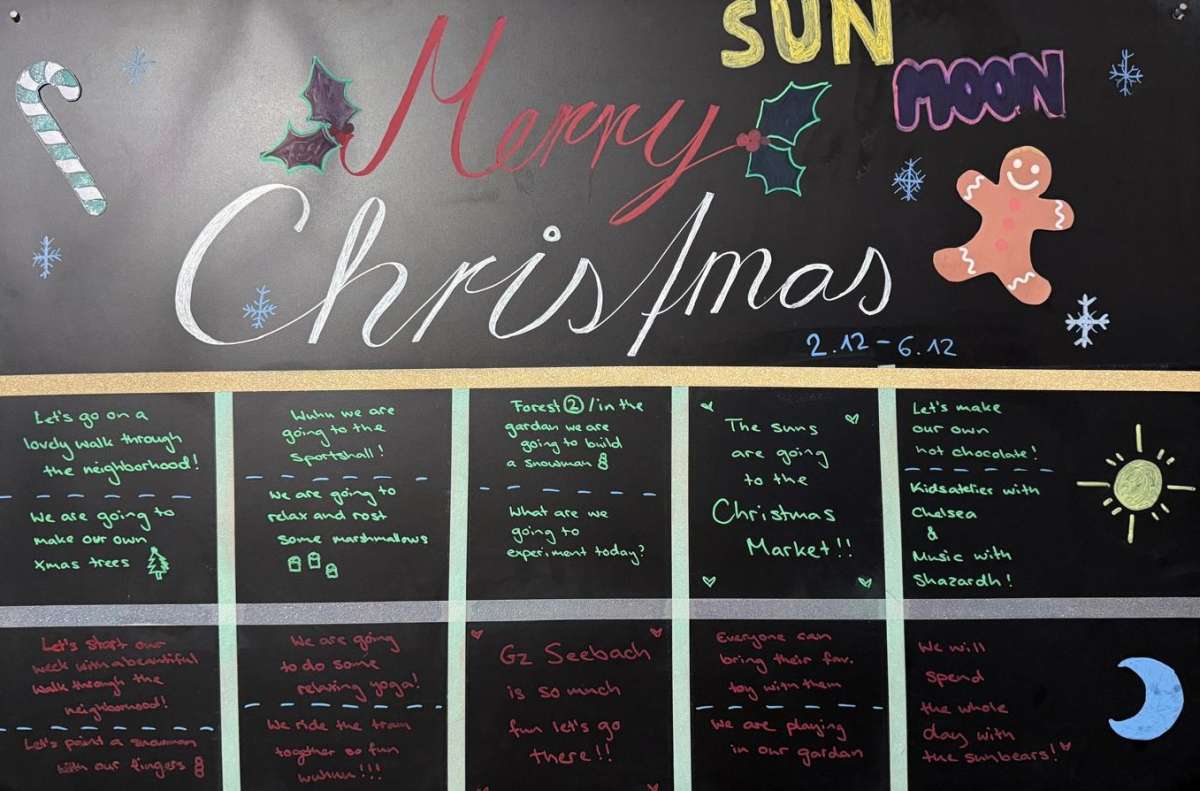 SUN
MOON
Merry
Christmas
2.12 - 6.12
Let's go on a
lovely walk through
the neighborhood!
We are going to
make our own
xmas trees
Wuhu we are
going to the
sportshall!
We are going to
relax and rost
some marshmallows
Forest ② / in the
gardan we are
going to build
a snowman
What are we
going to
experiment today?
The suns
are going
to the
Christmas
Market!!
Let's make
our own
hot chocolate!
Kidsatelier with
Chelsea
&
Music with
Shazardh!
Let's start our
week with a beautiful
walk through the
neighborhood!
Let's paint a snowman
with our fingers
We are going
to do some
relaxing yoga!
We ride the tram
together so fun
wuhuu!!!
Gz Seebach
is so much
fun let's go
there!!
Everyone can
bring their fav.
toy with them
We are playing
in our gardan
We will
spend
the whole
day with
the sunbears!